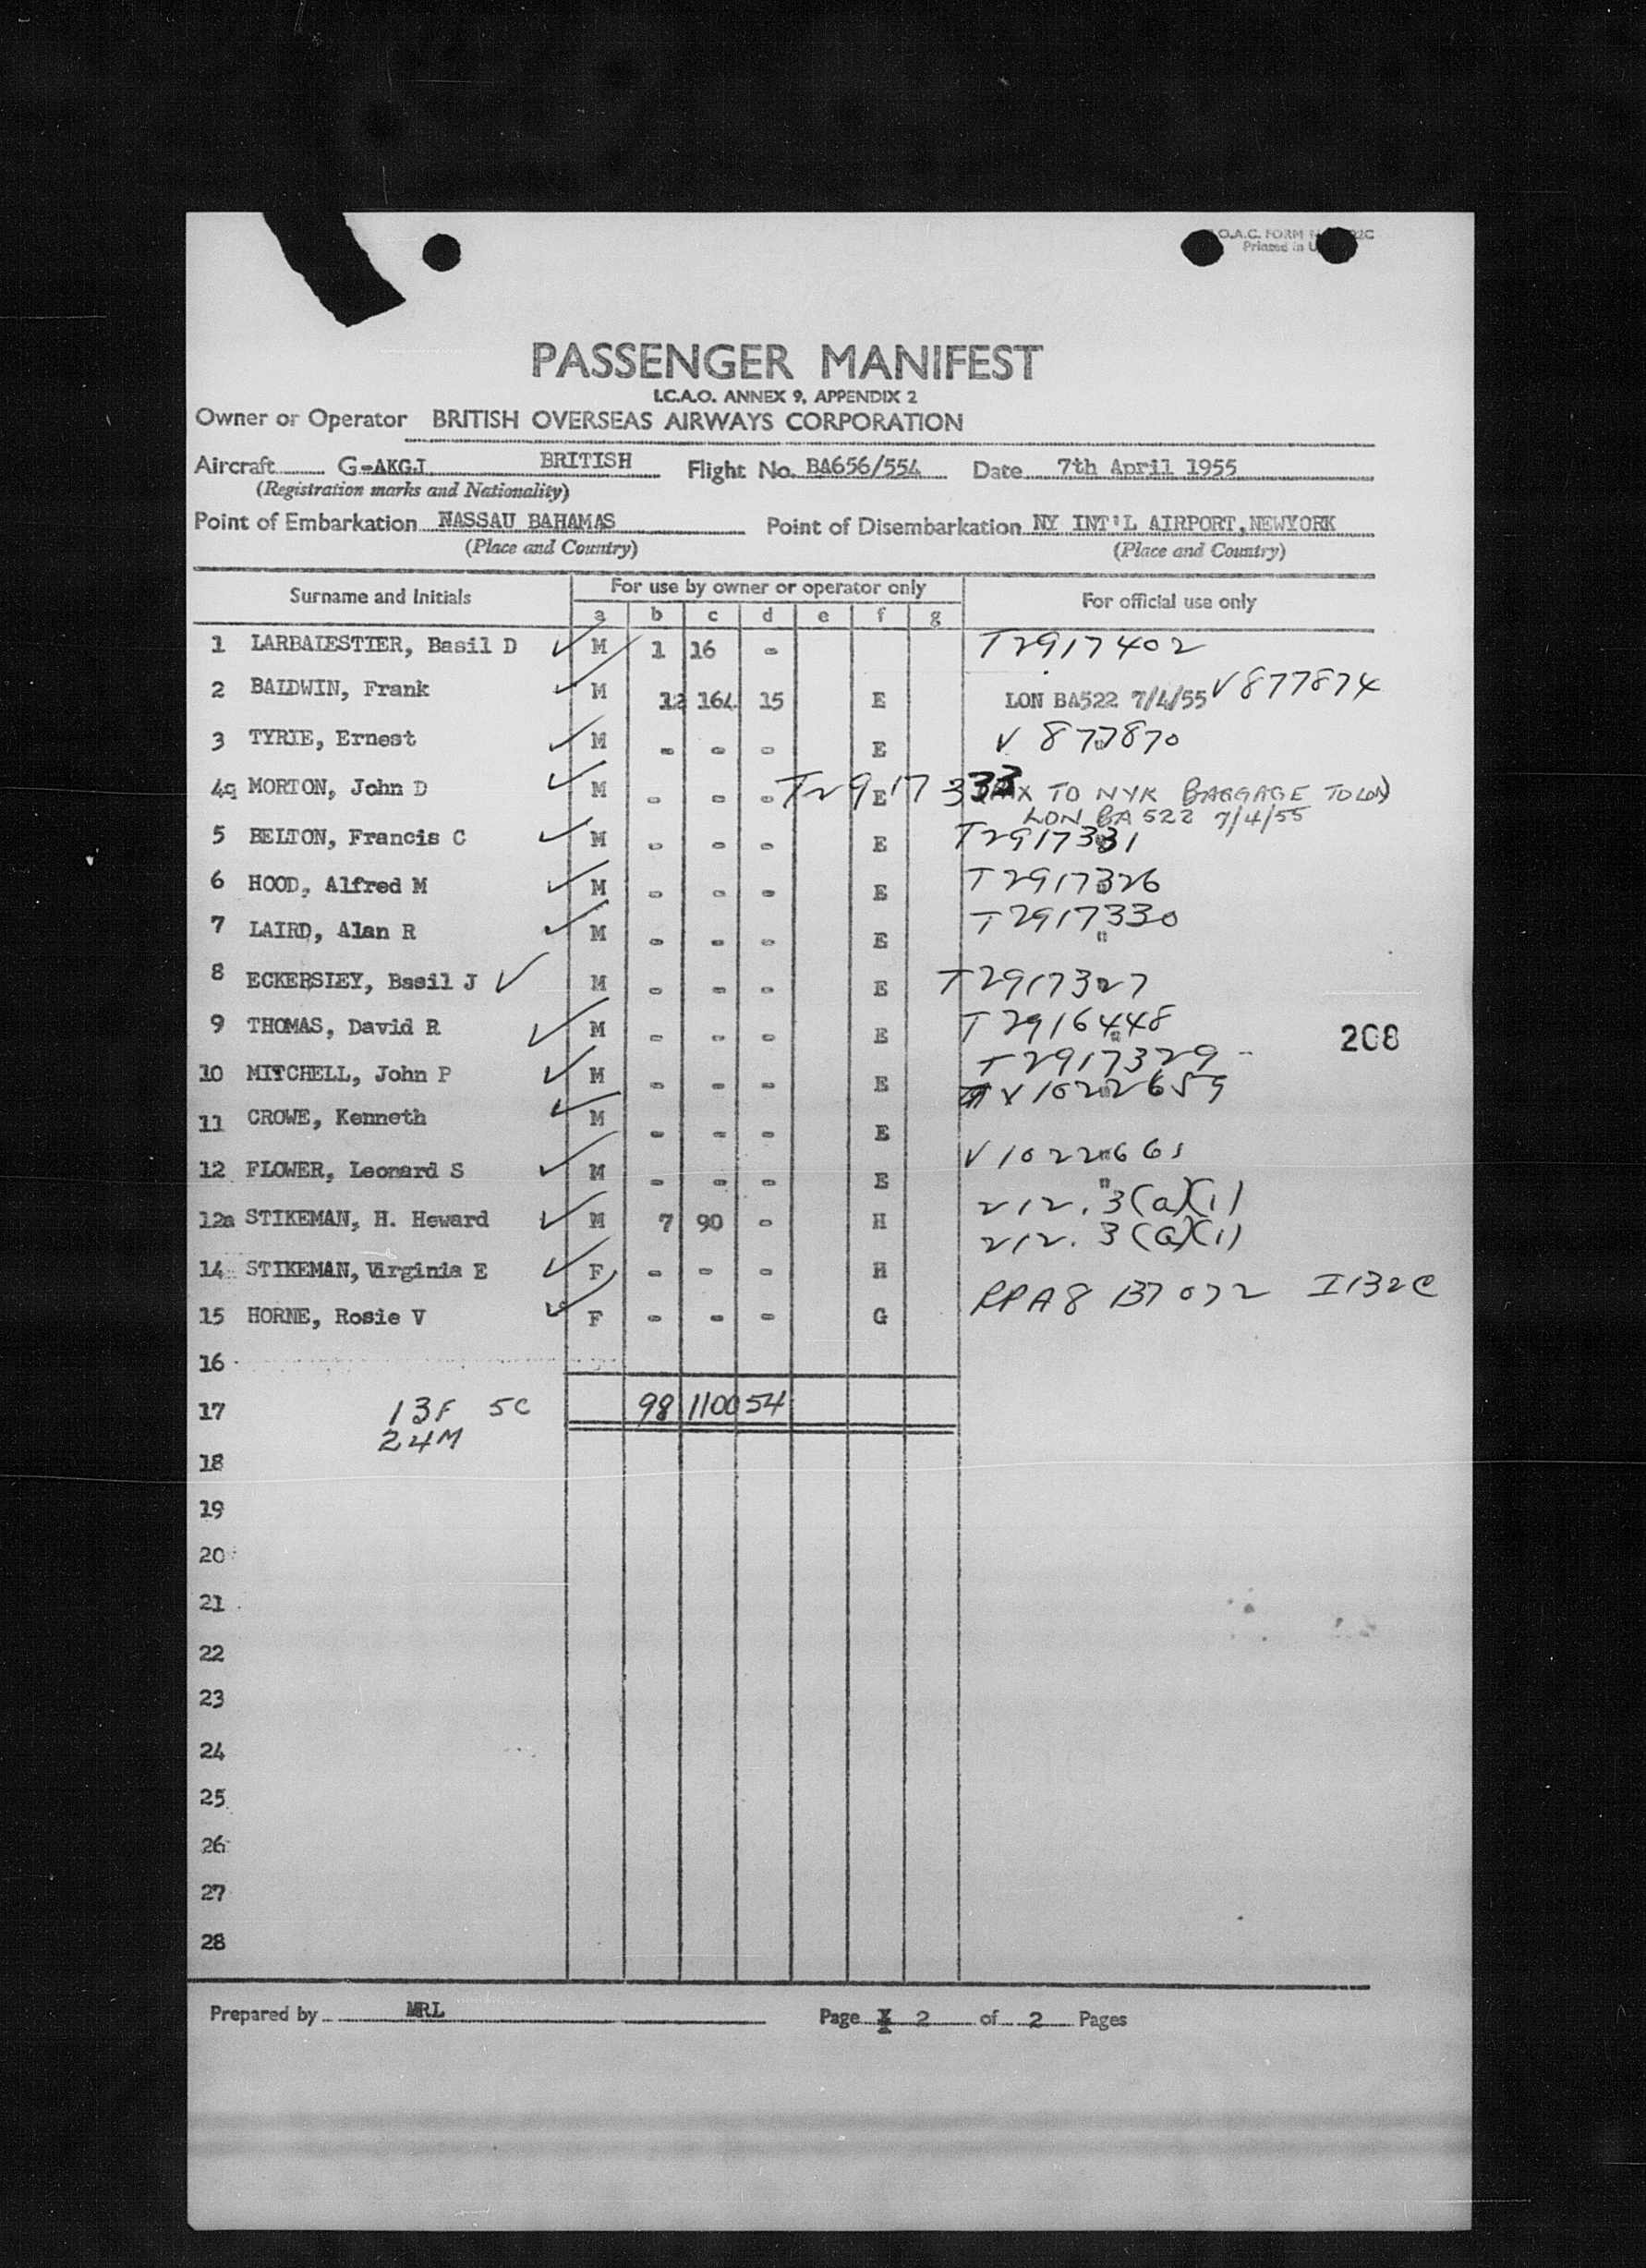 O.A.C. FORM
Printed in U
PASSENGER MANIFEST
I.C.A.O. ANNEX 9, APPENDIX 2
Owner or Operator BRITISH OVERSEAS AIRWAYS CORPORATION
Aircraft G-AKGJ BRITISH Flight No. BA656/554 Date 7th April 1955
(Registration marks and Nationality)
Point of Embarkation NASSAU BAHAMAS Point of Disembarkation NY INT'L AIRPORT, NEWYORK
(Place and Country) (Place and Country)
Surname and Initials For use by owner or operator only For official use only
a b c d e f g
1 LARBALESTIER, Basil D ✓ M 1 16 - T2917402
2 BALDWIN, Frank ✓ M 12 164 15 E LON BA522 7/4/55 V877874
3 TYRIE, Ernest ✓ M - - - E V 877870
4 MORTON, John D ✓ M - - - E T2917333 TO NYK BAGGAGE TO LON
LON BA 522 7/4/55
5 BELTON, Francis C ✓ M - - - E T2917331
6 HOOD, Alfred M ✓ M - - - E T2917326
7 LAIRD, Alan R ✓ M - - - E T2917330
8 ECKERSLEY, Basil J ✓ M - - - E T2917327
9 THOMAS, David R ✓ M - - - E T2916448
208
10 MITCHELL, John P ✓ M - - - E T2917329
11 CROWE, Kenneth ✓ M - - - E V1022659
12 FLOWER, Leonard S ✓ M - - - E V1022661
12a STIKEMAN, H. Heward ✓ M 7 90 - H 212.3(a)(1)
14 STIKEMAN, Virginia E ✓ F - - - H 212.3(a)(1)
15 HORNE, Rosie V ✓ F - - - G RPA8 137072 I132C
16
17 13F 5C 98 1100 54
24M
18
19
20
21
22
23
24
25
26
27
28
Prepared by MRL Page 2 of 2 Pages